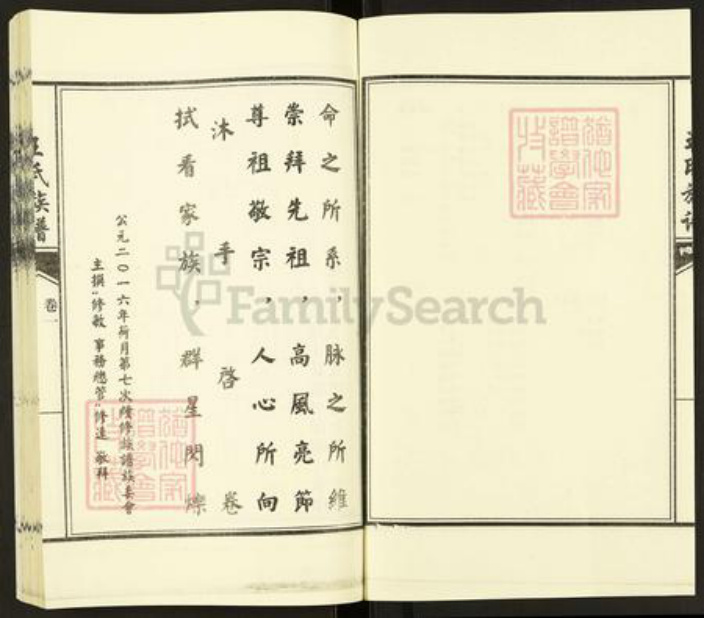 命之所系，脉之所維
崇拜先祖，高風亮節
尊祖敬宗，人心所向
沐手啓卷
拭看家族，群星閃爍
公元二〇一六年荷月第七次續修族譜族委會
主撰：修敏 事務總管：修達 敬拜
王氏族譜
卷一
FamilySearch
猶他家譜學會收藏
猶他家譜學會收藏